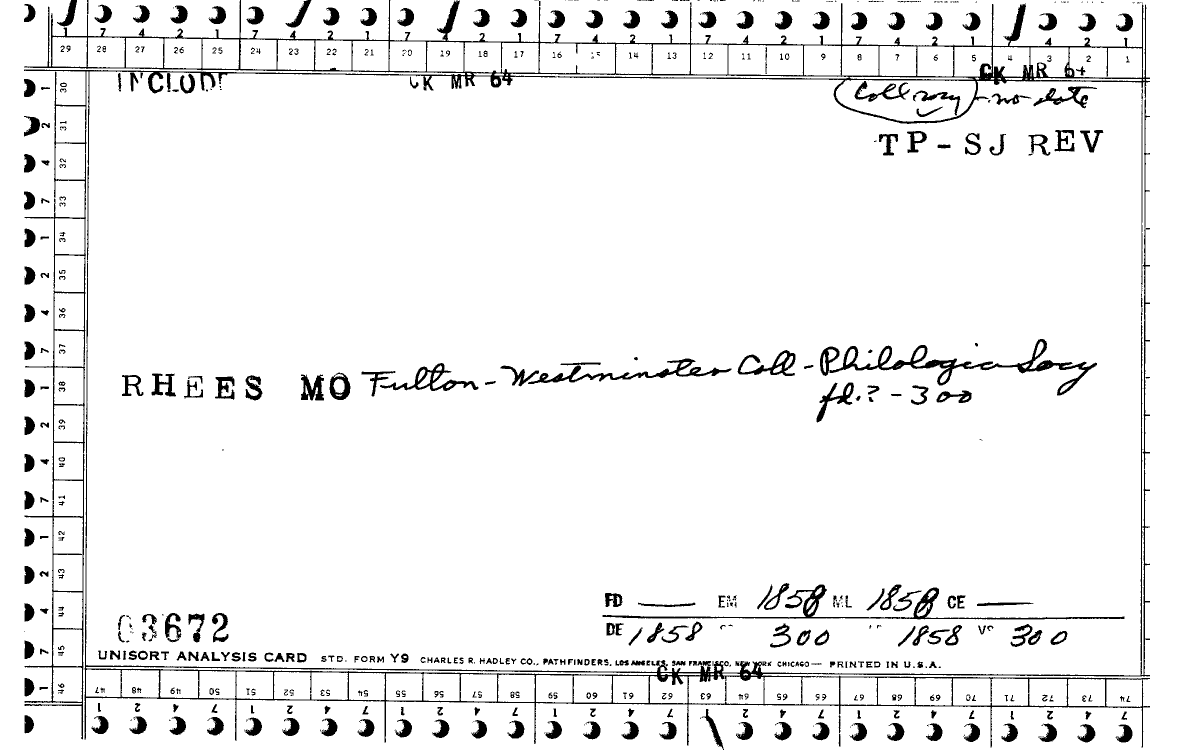 1 7 4 2 1 7 4 2 1 7 4 2 1 7 4 2 1 7 4 2 1 7 4 2 1 7 4 2 1
29 28 27 26 25 24 23 22 21 20 19 18 17 16 15 14 13 12 11 10 9 8 7 6 5 4 3 2 1
INCLUDE CK MR 64 CK MR 64
Coll - no date
TP-SJ REV
1 30
2 31
4 32
7 33
1 34
2 35
4 36
7 37
1 38
2 39
4 40
7 41
1 42
2 43
4 44
7 45
1 46
RHEES MO Fulton - Westminster Coll - Philologic Socy
fd.? - 300
FD — EM 1858 ML 1858 CE —
03672
DE 1858 300 1858 VS 300
UNISORT ANALYSIS CARD STD. FORM Y9 CHARLES R. HADLEY CO., PATHFINDERS, LOS ANGELES, SAN FRANCISCO, NEW YORK CHICAGO — PRINTED IN U.S.A.
CK MR 64
47 48 49 50 51 52 53 54 55 56 57 58 59 60 61 62 63 64 65 66 67 68 69 70 71 72 73 74
1 2 4 7 1 2 4 7 1 2 4 7 1 2 4 7 1 2 4 7 1 2 4 7 1 2 4 7